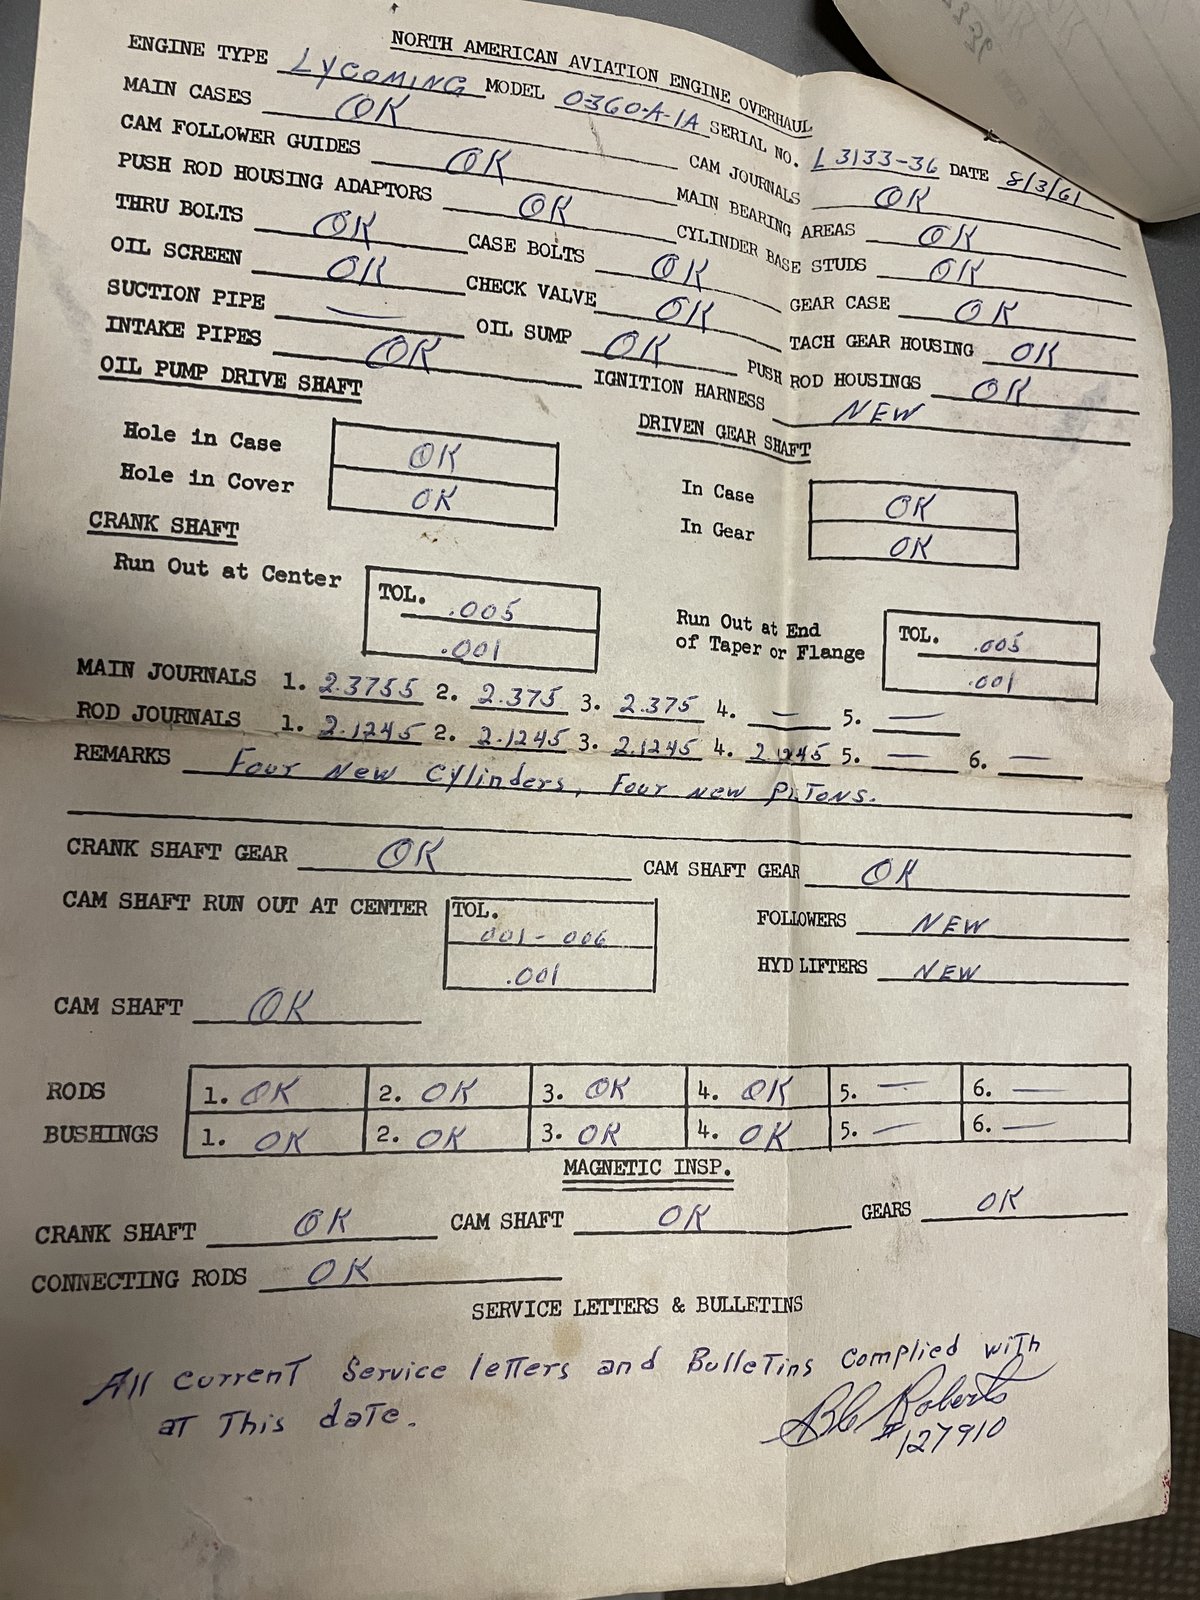 NORTH AMERICAN AVIATION ENGINE OVERHAUL
ENGINE TYPE LYCOMING MODEL O-360-A-1A SERIAL NO. L 3133-36 DATE 8/3/61
MAIN CASES OK CAM JOURNALS OK
CAM FOLLOWER GUIDES OK MAIN BEARING AREAS OK
PUSH ROD HOUSING ADAPTORS OK CYLINDER BASE STUDS OK
THRU BOLTS OK CASE BOLTS OK GEAR CASE OK
OIL SCREEN OK CHECK VALVE OK TACH GEAR HOUSING OK
SUCTION PIPE — OIL SUMP OK PUSH ROD HOUSINGS OK
INTAKE PIPES OK IGNITION HARNESS NEW
OIL PUMP DRIVE SHAFT DRIVEN GEAR SHAFT
Hole in Case OK In Case OK
Hole in Cover OK In Gear OK
CRANK SHAFT
Run Out at Center TOL. .005 Run Out at End TOL. .005
.001 of Taper or Flange .001
MAIN JOURNALS 1. 2.3755 2. 2.375 3. 2.375 4. — 5. —
ROD JOURNALS 1. 2.1245 2. 2.1245 3. 2.1245 4. 2.1245 5. — 6. —
REMARKS Four New Cylinders, Four New PisTons.
CRANK SHAFT GEAR OK CAM SHAFT GEAR OK
CAM SHAFT RUN OUT AT CENTER TOL. 001 - 006 FOLLOWERS NEW
.001 HYD LIFTERS NEW
CAM SHAFT OK
RODS 1. OK 2. OK 3. OK 4. OK 5. — 6. —
BUSHINGS 1. OK 2. OK 3. OK 4. OK 5. — 6. —
MAGNETIC INSP.
CRANK SHAFT OK CAM SHAFT OK GEARS OK
CONNECTING RODS OK
SERVICE LETTERS & BULLETINS
All current Service letters and Bulletins complied with
at This date. Roberts
#127910